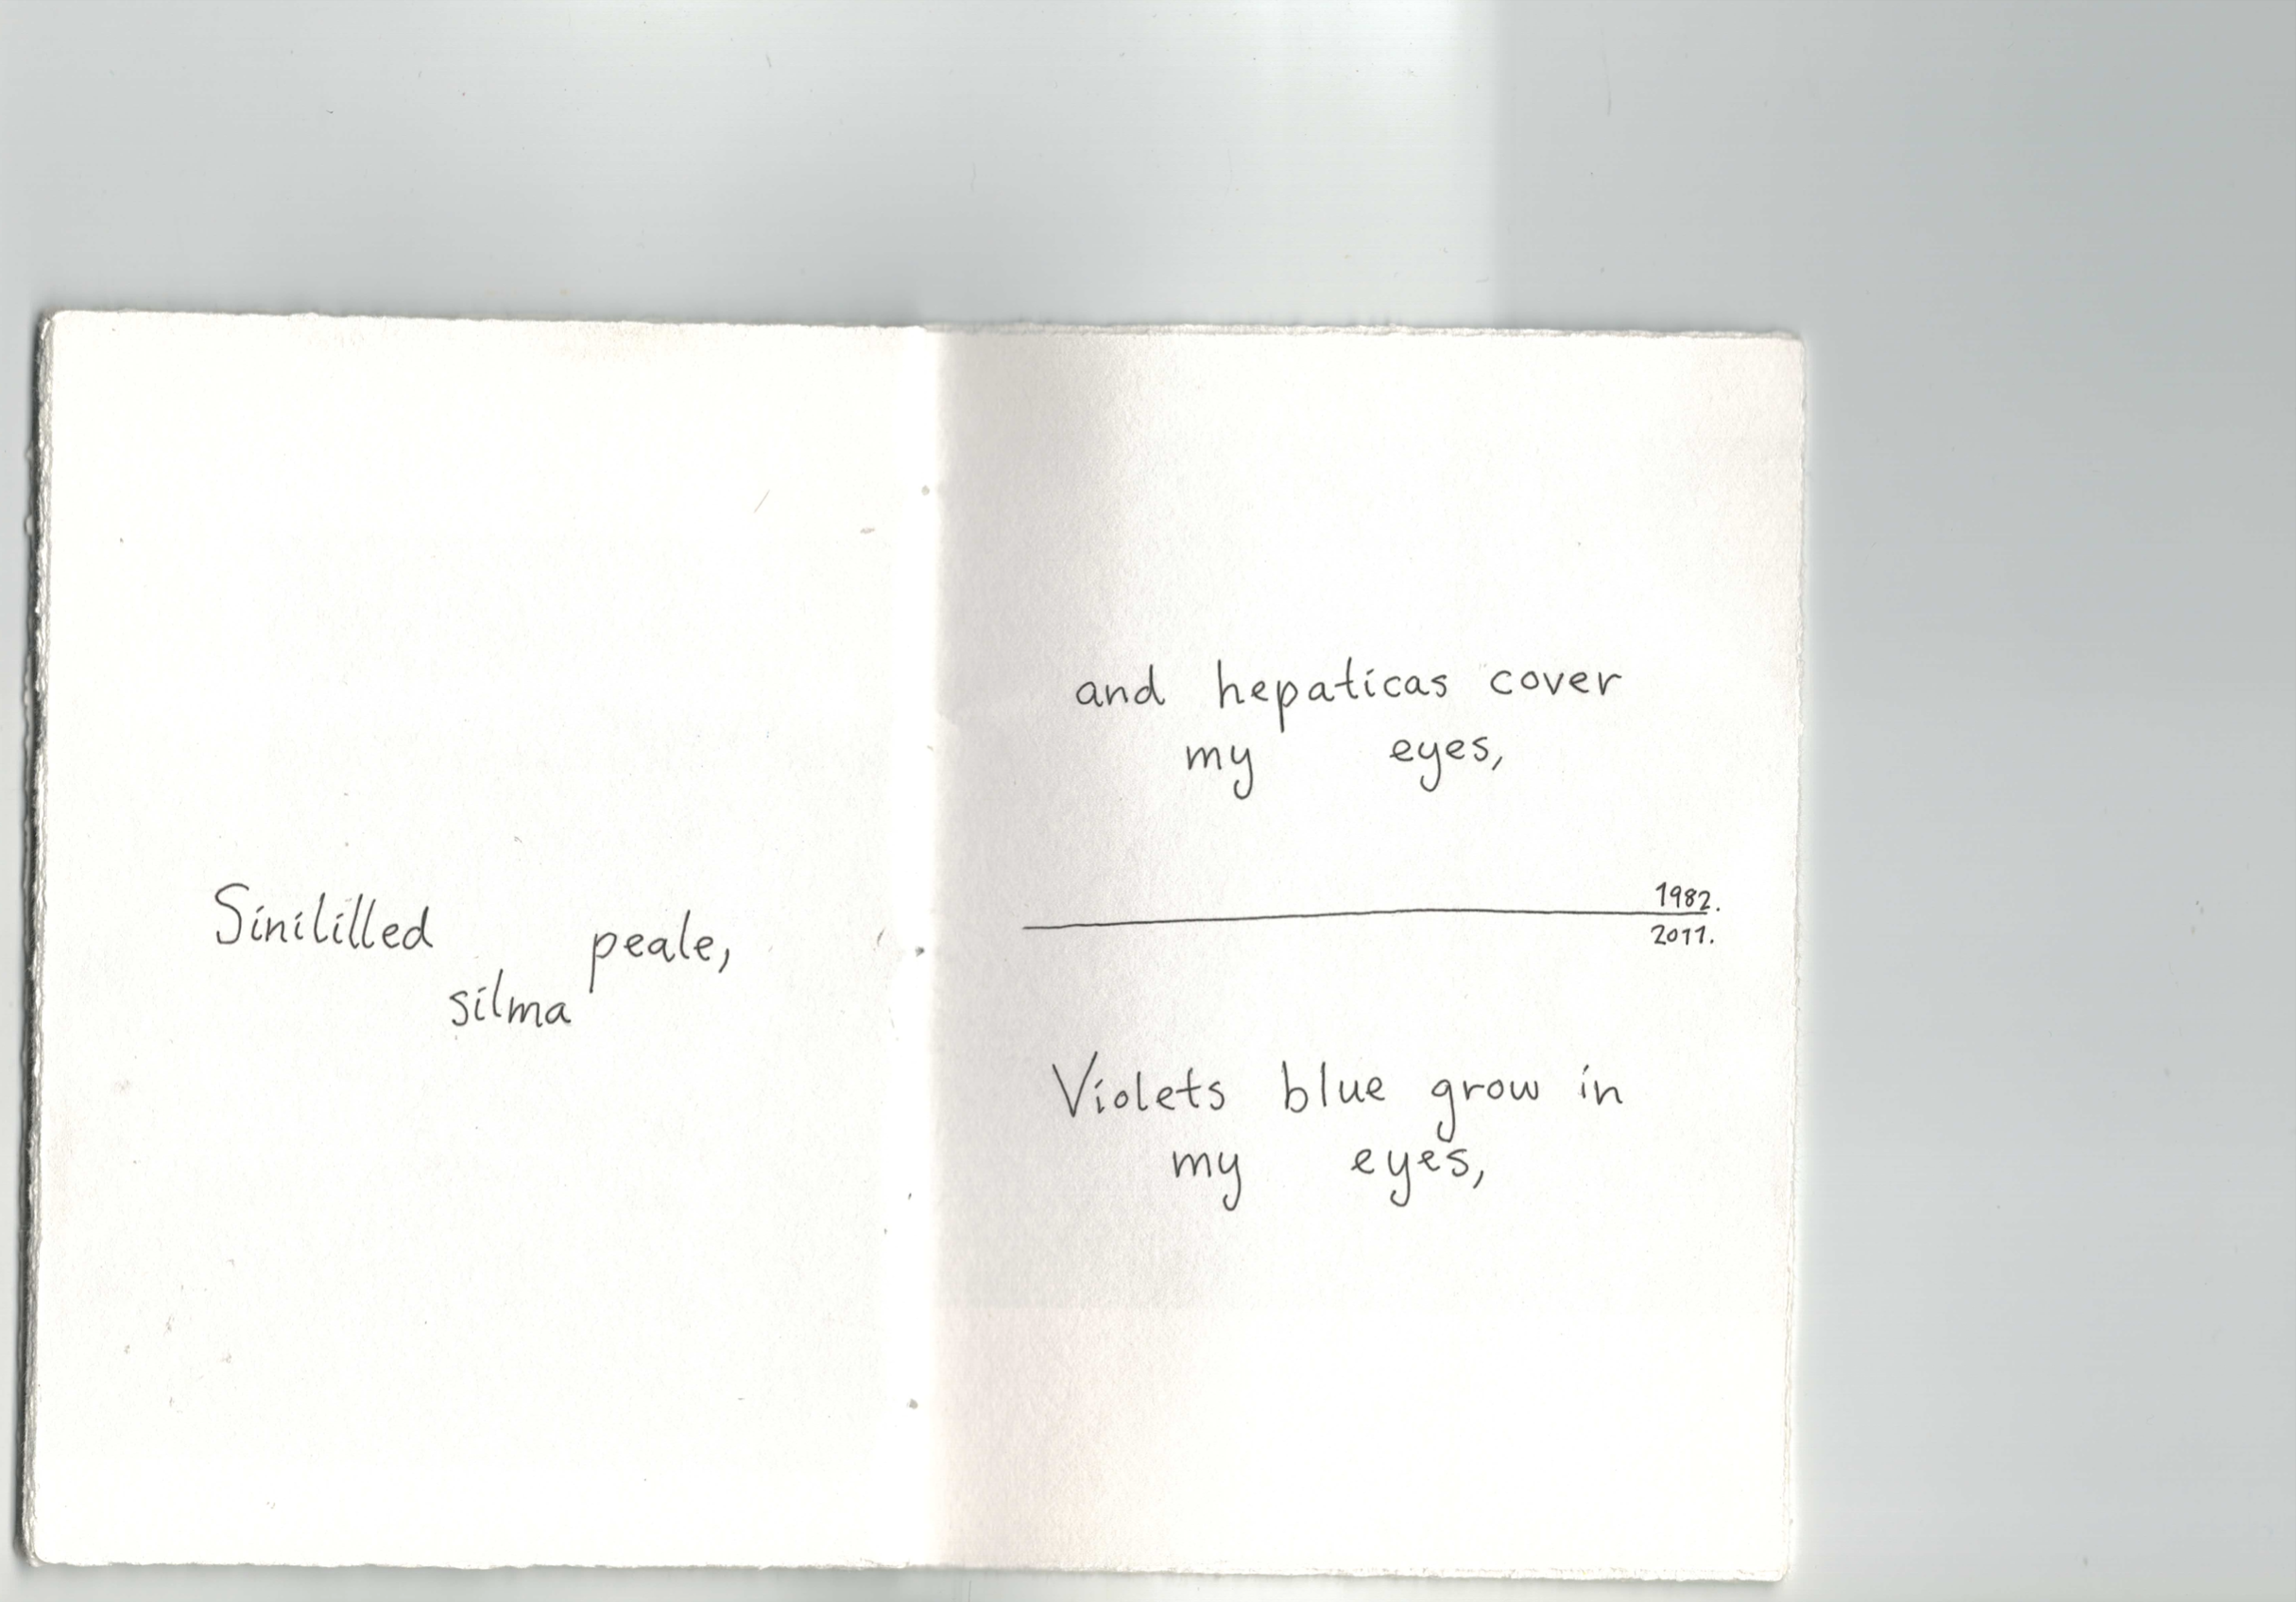 Sinililled silma peale,
and hepaticas cover
my eyes,
1982.
2011.
Violets blue grow in
my eyes,